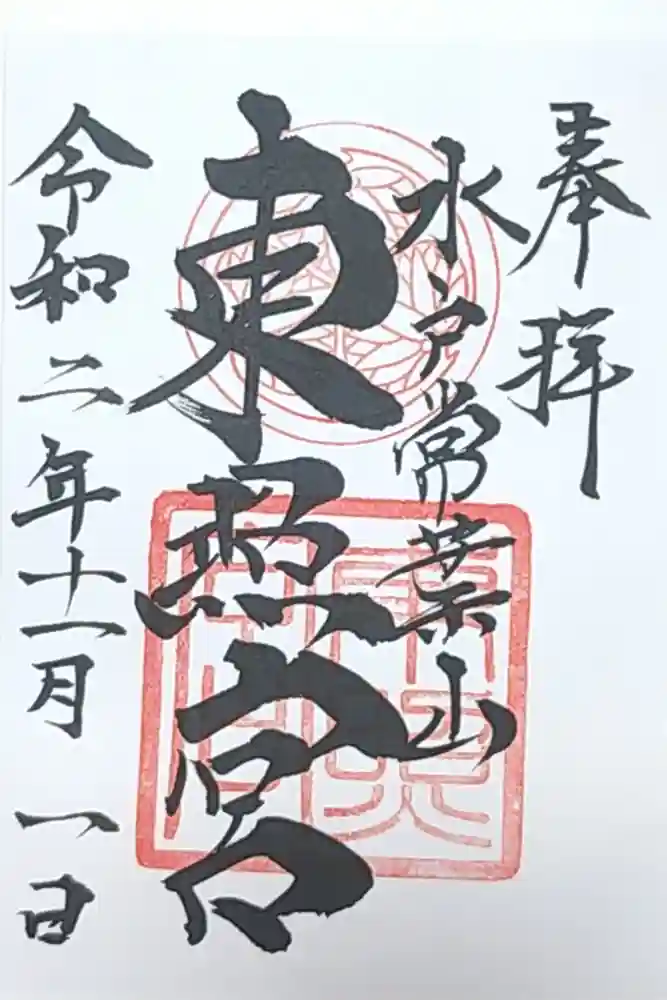 奉拝
水戸常葉山
東照宮
令和二年十一月 一日